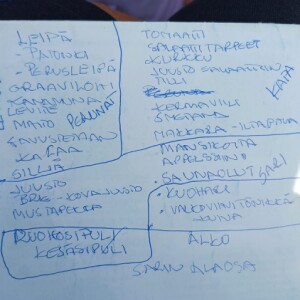 LEIPÄ
- PATONKI
- PERUSLEIPÄ
GRAAVILOHI
KANAMUNA
LEVITE
MAITO PERUNAT
SAVUSIEMAN
KALAA
SILLIÄ
JUUSTO
BRIE - KOVAJUUSTO
MUSTAPEKKA
RUOHOSIPULI
KESÄSIPULI
TOMAATTI
SALAATTITARPEET
KURKKU
JUUSTO SALAATTIIN
TILLI
KERMAVIILI
SMETANA
MAKKARA - ILTAPALA
MANSIKOITA
APPELSIINI
- SAUNAOLUT
- KUOHARI
- VALKOVIINI
ALKO